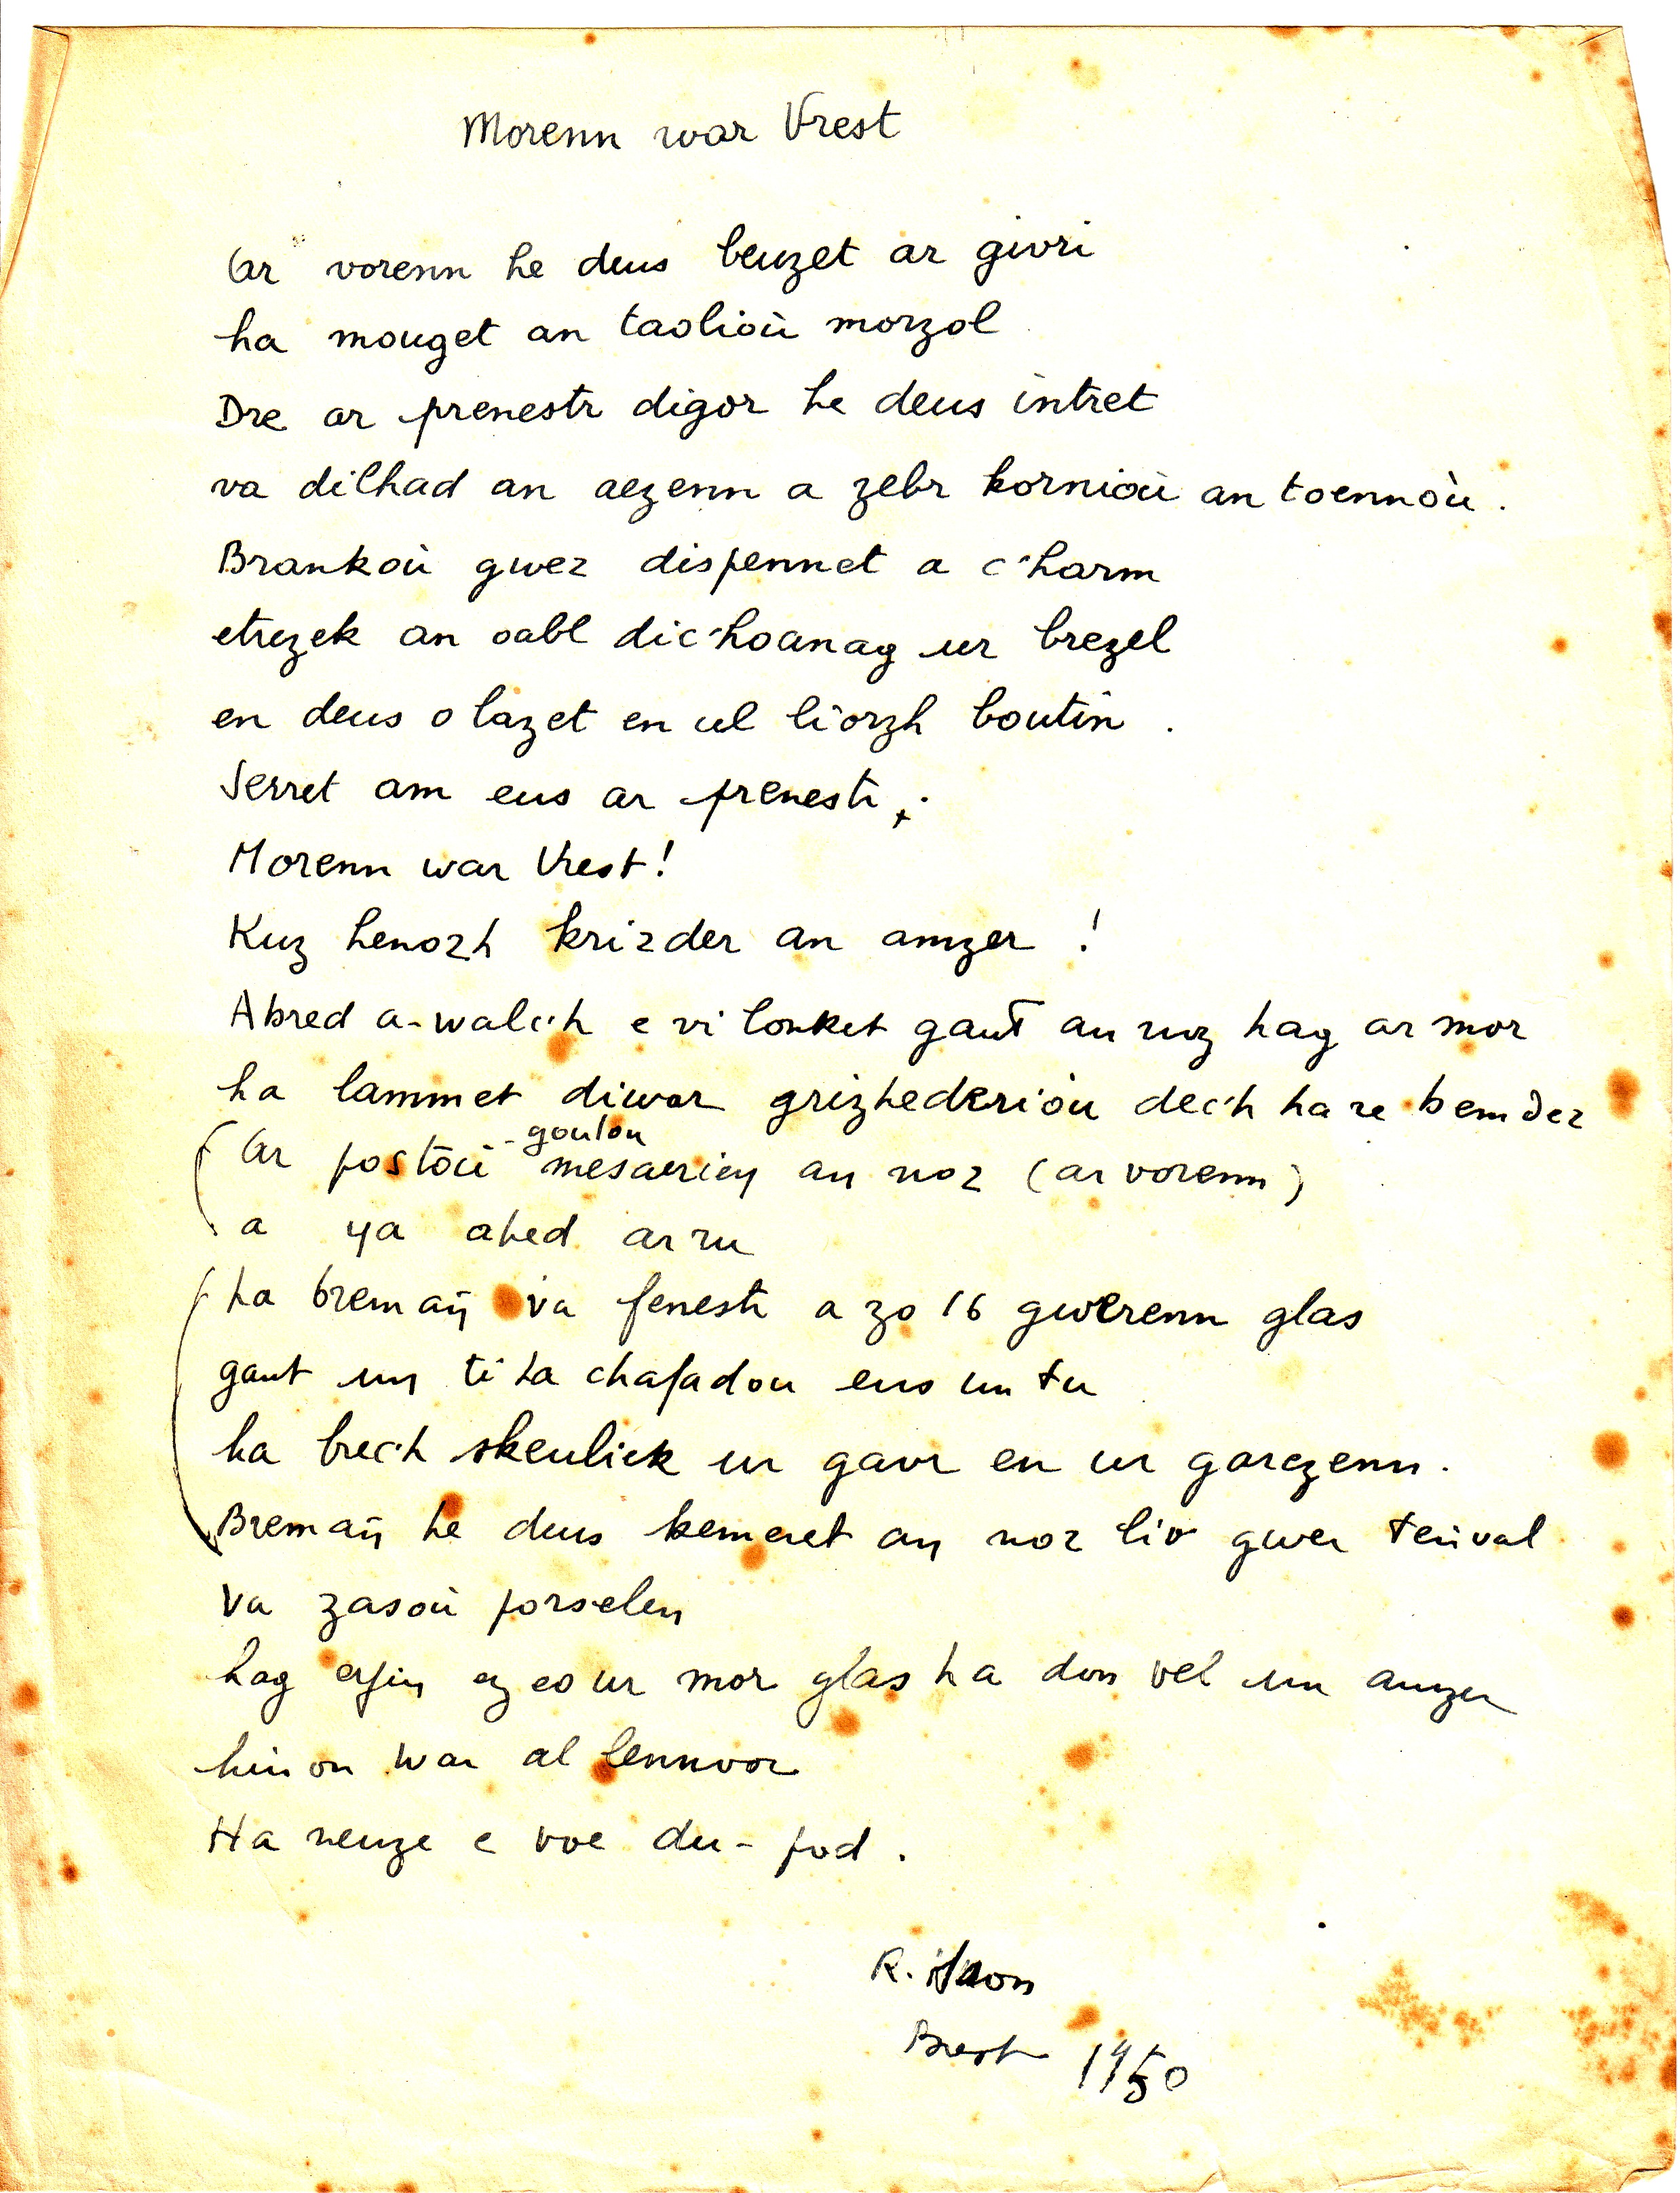 Morenn war Vrest
Ar vorenn he deus beuzet ar givri
ha mouget an taolioù morzol
Dre ar prenestr digor he deus intret
va dilhad an aezenn a zebr kornioù an toennoù.
Brankoù gwez dispennet a c'harm
etrezek an oabl dic'hoanag ur brezel
en deus o lazet en ul liorzh boutin.
Serret am eus ar prenestr.
Morenn war Vrest!
Kuz henozh krizder an amzer !
Abred a-walc'h e vi lonket gant an noz hag ar mor
ha lammet diwar grizhederioù dec'h ha re bemdez
-goulou
Ar postoù mesaerien an noz (ar vorenn)
a ya ahed ar ru
ha bremañ va fenestr a zo 16 gwerenn glas
gant un ti ha chafadou eus un tu
ha brec'h skeuliek ur gavr en ur garezenn.
Bremañ he deus kemeret an noz liv gwer teñval
va zasoù porselen
hag erfin ez eo ur mor glas ha don vel un amzer
hinon war al lennvor
Ha neuze e voe du-pod.
R. Huon
Brest 1950